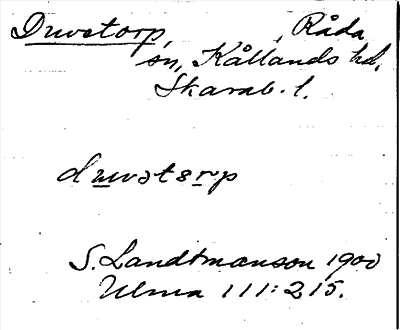 Duvetorp, Råda
sn, Kållands hd,
Skarab. l.
duvətorp
S. Landtmanson 1900
Ulma 111:215.